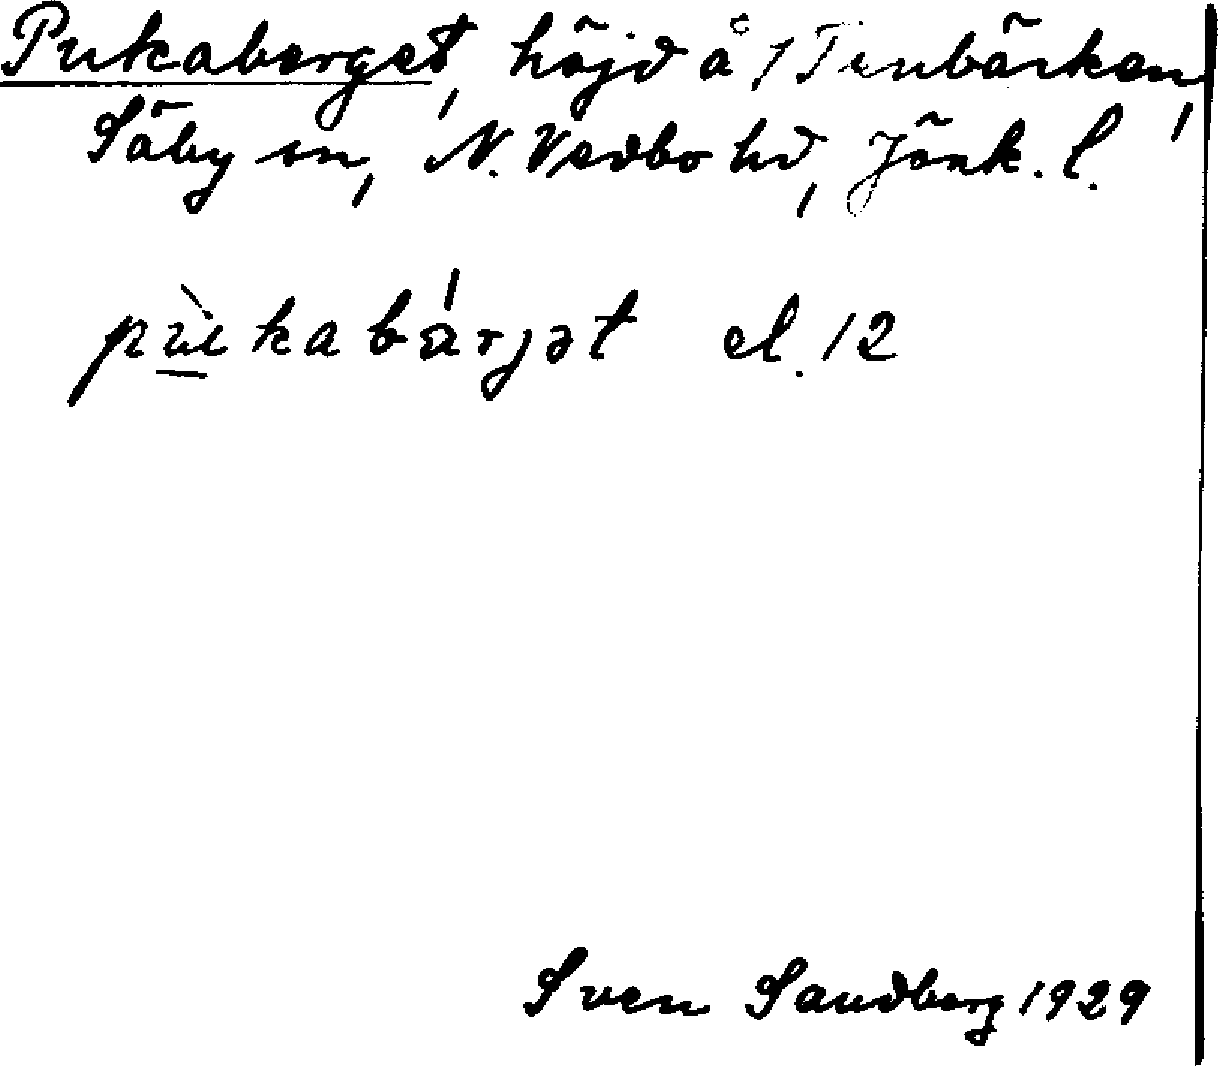 Pukaberget, höjd å 1 Tunbärken,
Säby sn, N. Vedbo hd, Jönk. l.
pùkabárjət el. 12
Sven Sandberg 1929